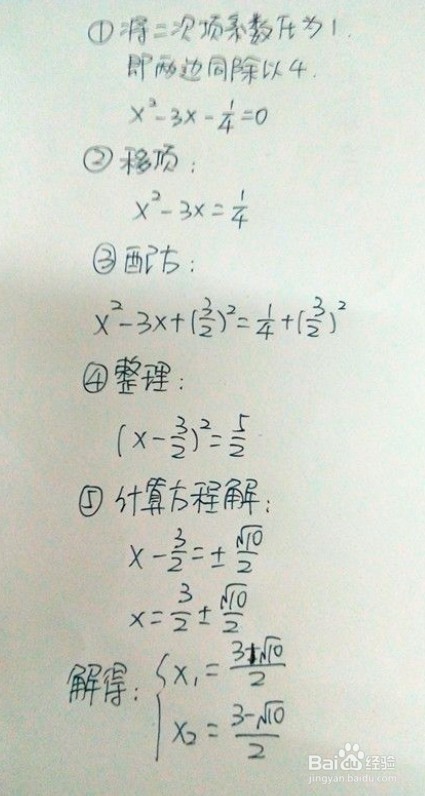 ① 将二次项系数化为1.
即两边同除以4.
x²-3x-1/4=0
② 移项:
x²-3x=1/4
③ 配方:
x²-3x+(3/2)²=1/4+(3/2)²
④ 整理:
(x-3/2)²=5/2
⑤ 计算方程解:
x-3/2=±√10/2
x=3/2±√10/2
解得: { x₁=3+√10/2
x₂=3-√10/2
Baidu经验
jingyan.baidu.com